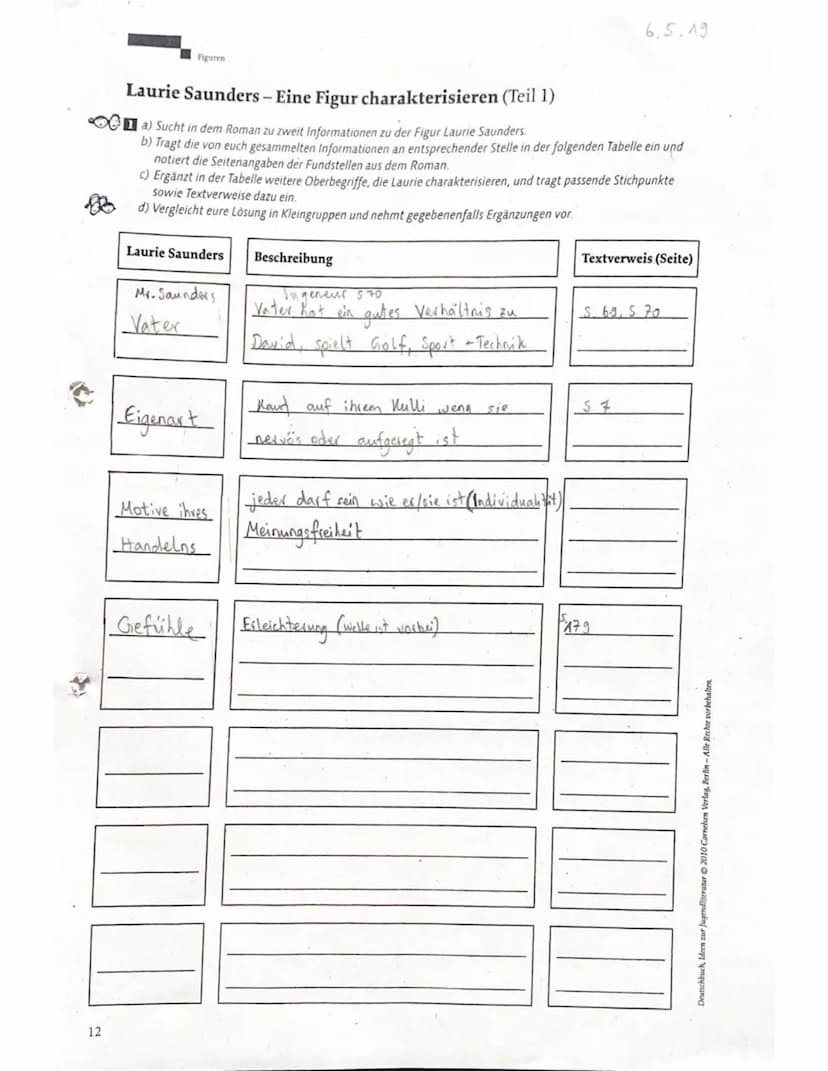 6.5.19
Figuren
Laurie Saunders – Eine Figur charakterisieren (Teil 1)
1 a) Sucht in dem Roman zu zweit Informationen zu der Figur Laurie Saunders.
b) Tragt die von euch gesammelten Informationen an entsprechender Stelle in der folgenden Tabelle ein und
notiert die Seitenangaben der Fundstellen aus dem Roman.
c) Ergänzt in der Tabelle weitere Oberbegriffe, die Laurie charakterisieren, und tragt passende Stichpunkte
sowie Textverweise dazu ein.
d) Vergleicht eure Lösung in Kleingruppen und nehmt gegebenenfalls Ergänzungen vor.
Laurie Saunders Beschreibung Textverweis (Seite)
Mr. Saunders Ingeneur S 70
Vater Vater hat ein gutes Verhältnis zu S. 69, S 70
David, spielt Golf, Sport + Technik
Eigenart Kaut auf ihrem Kulli wenn sie S 7
nervös oder aufgeregt ist
Motive ihres jeder darf sein wie er/sie ist (Individualität)
Handelns Meinungsfreiheit
Gefühle Erleichterung (Welle ist vorbei) S 179
Deutschbuch, Ideen zur Jugendliteratur © 2010 Cornelsen Verlag, Berlin – Alle Rechte vorbehalten.
12